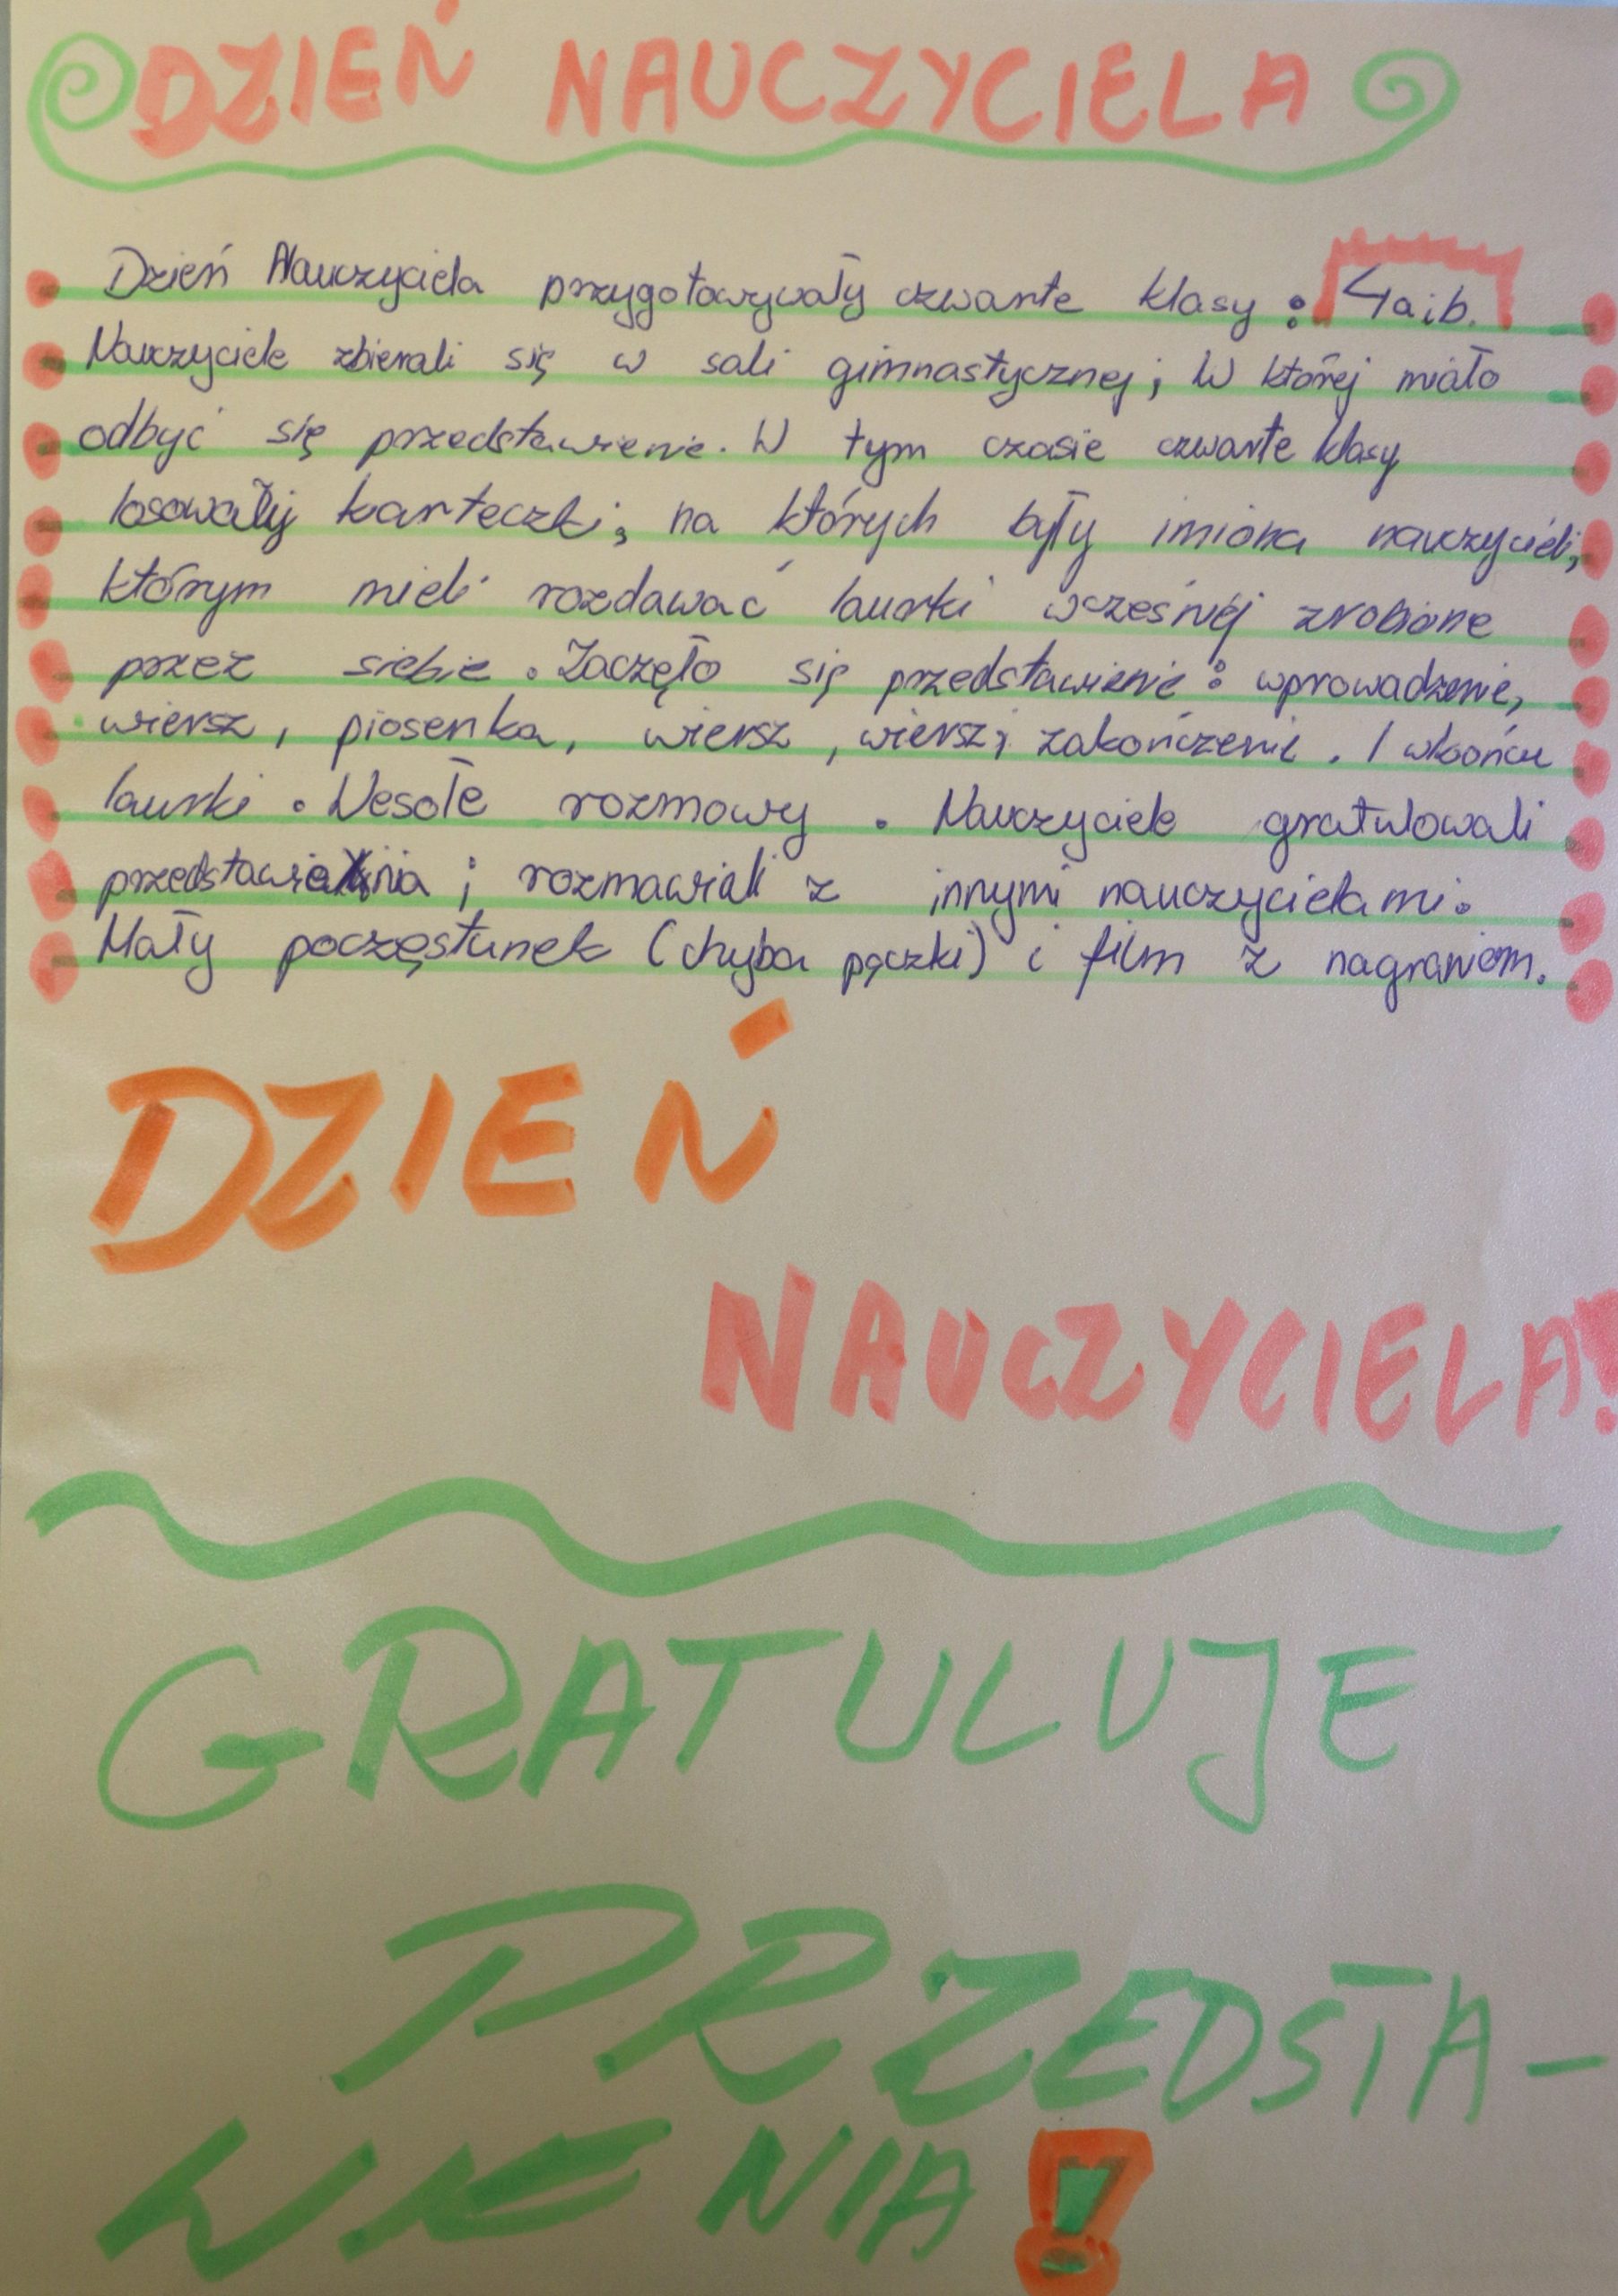 DZIEŃ NAUCZYCIELA
Dzień Nauczyciela przygotowywały czwarte klasy : 4a i b.
Nauczyciele zbierali się w sali gimnastycznej, W której miało
odbyć się przedstawienie. W tym czasie czwarte klasy
losowały karteczki, na których były imiona nauczycieli,
którym mieli rozdawać laurki wcześniej zrobione
przez siebie. Zaczęło się przedstawienie: wprowadzenie,
wiersz, piosenka, wiersz, wiersz, zakończenie. I wkońcu
laurki. Wesołe rozmowy. Nauczyciele gratulowali
przedstawienia i rozmawiali z innymi nauczycielami.
Mały poczęstunek (chyba pączki) i film z nagraniem.
DZIEŃ
NAUCZYCIELA!
GRATULUJE
PRZEDSTA-
WIENIA!